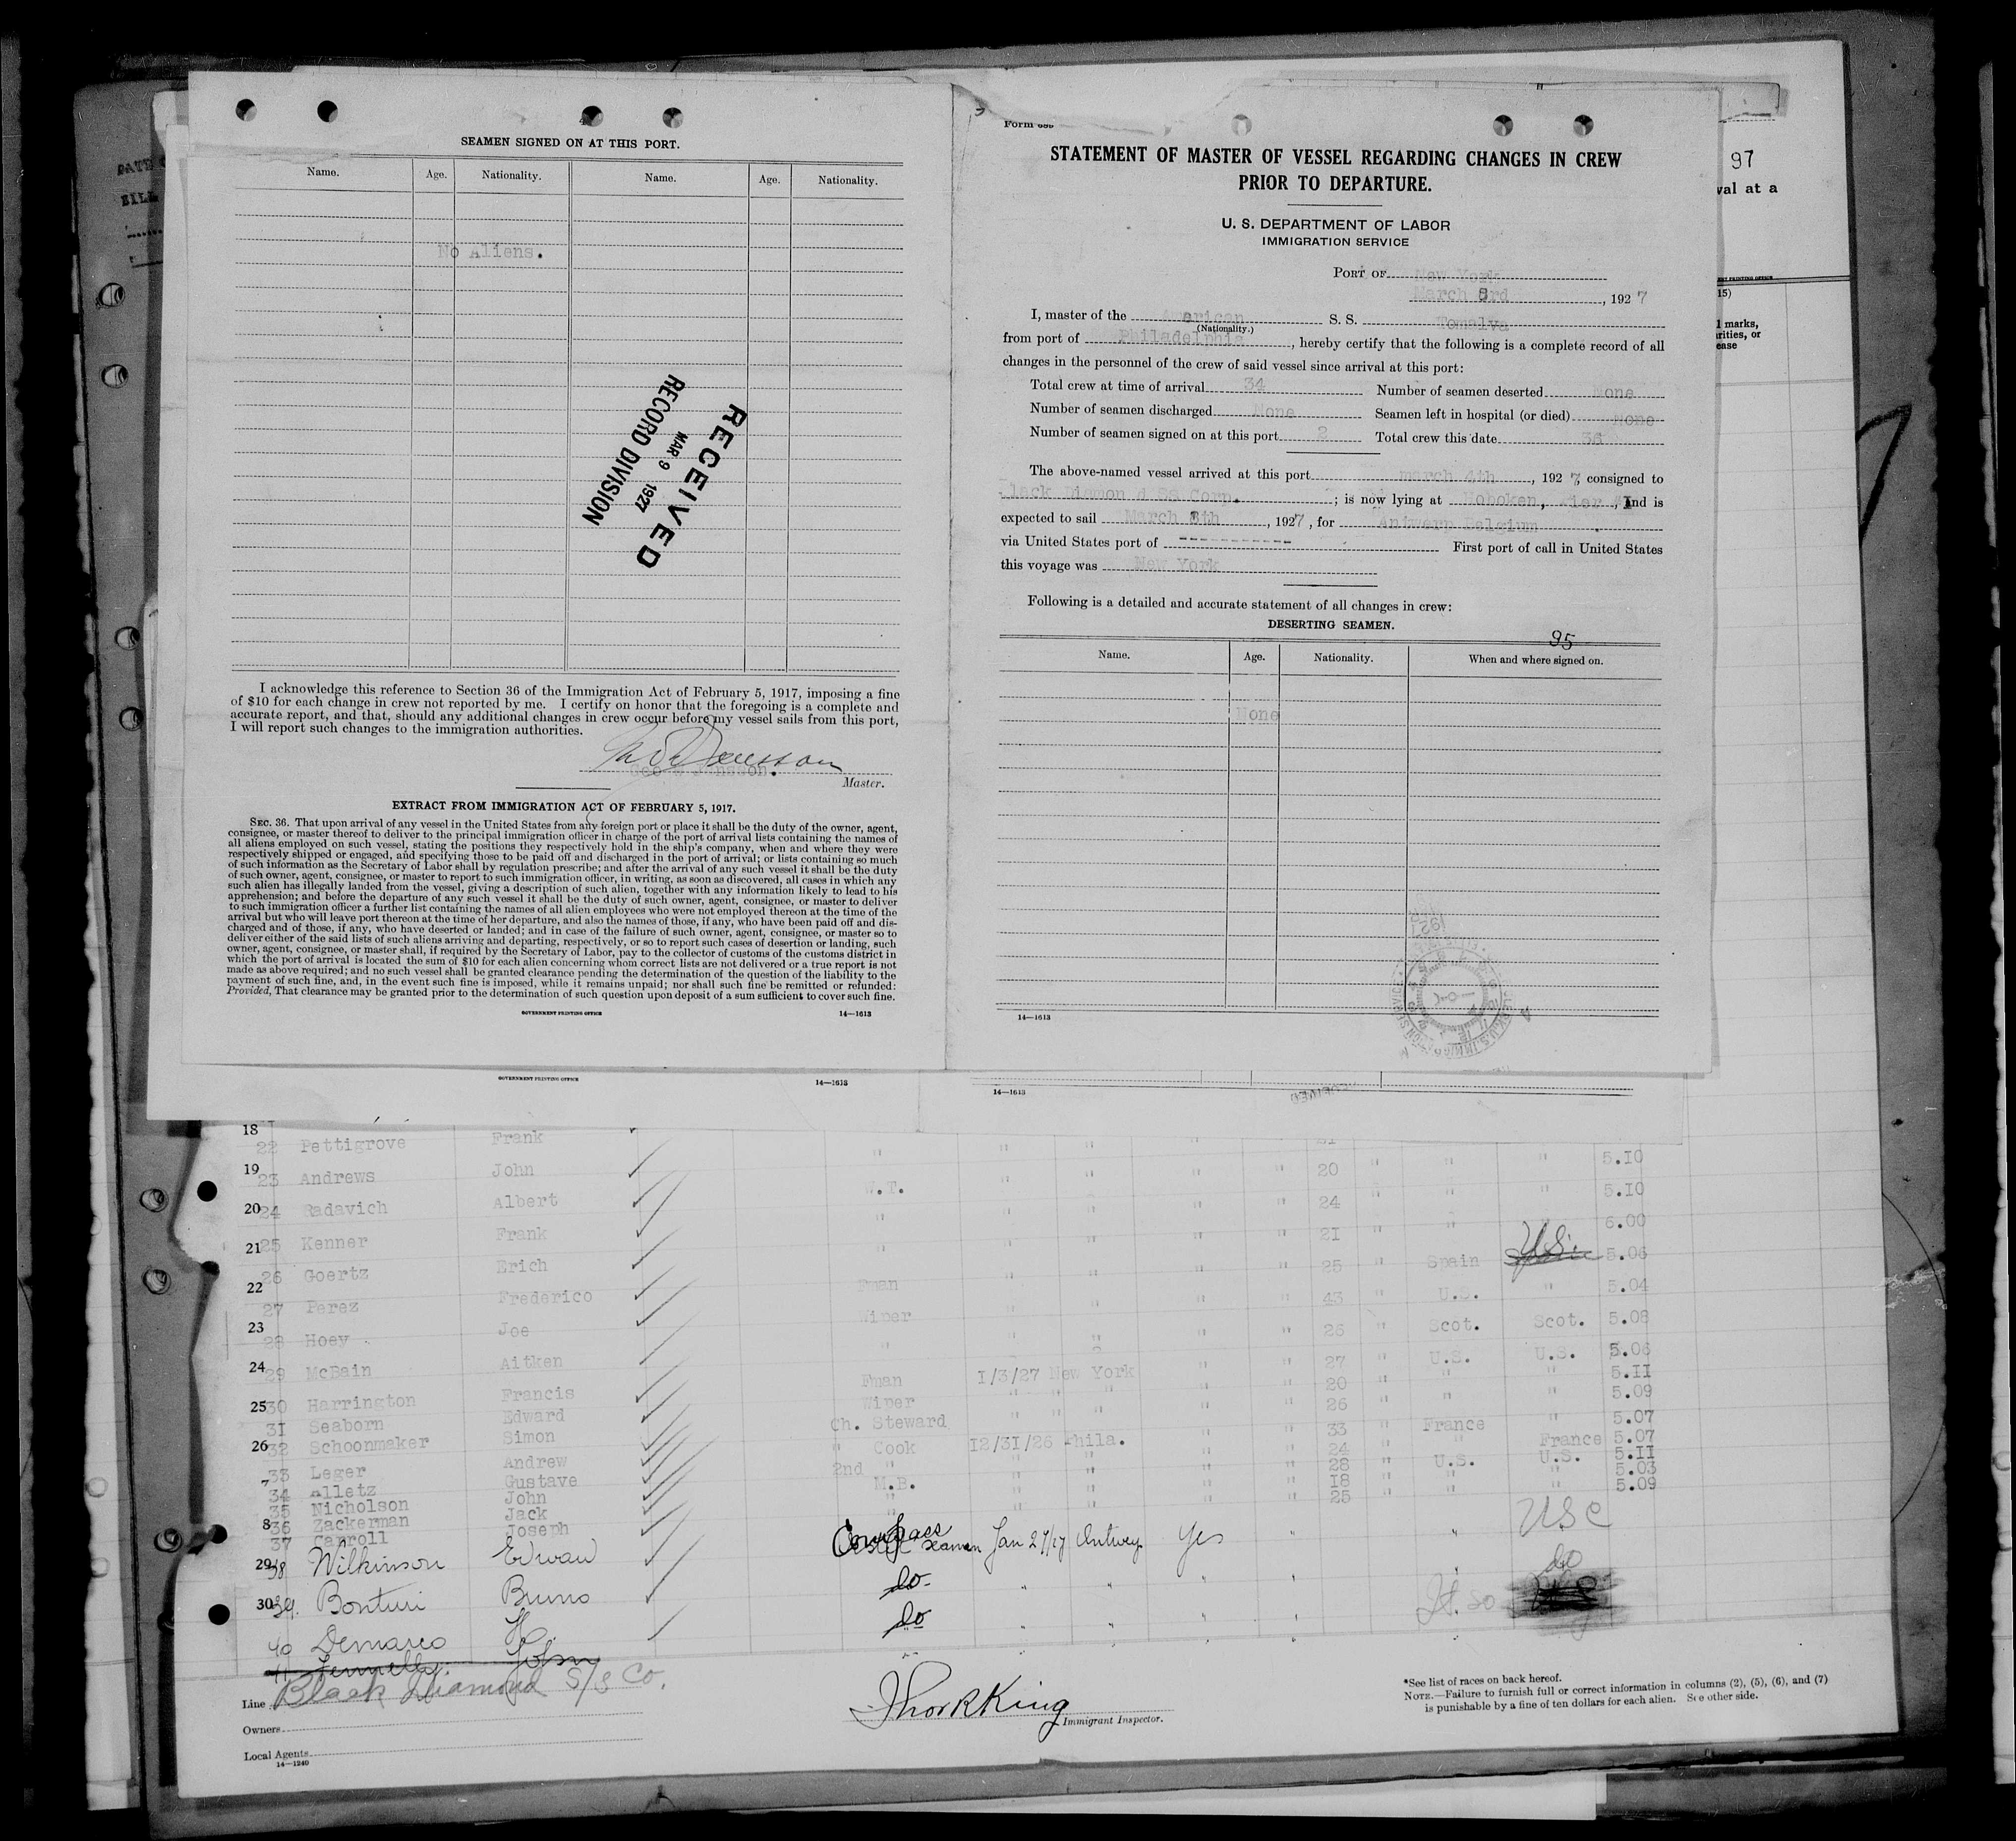 SEAMEN SIGNED ON AT THIS PORT.
Name. Age. Nationality. Name. Age. Nationality.
No Aliens.
RECEIVED
MAR 9 1927
RECORD DIVISION
I acknowledge this reference to Section 36 of the Immigration Act of February 5, 1917, imposing a fine
of $10 for each change in crew not reported by me. I certify on honor that the foregoing is a complete and
accurate report, and that, should any additional changes in crew occur before my vessel sails from this port,
I will report such changes to the immigration authorities.
Master.
EXTRACT FROM IMMIGRATION ACT OF FEBRUARY 5, 1917.
SEC. 36. That upon arrival of any vessel in the United States from any foreign port or place it shall be the duty of the owner, agent,
consignee, or master thereof to deliver to the principal immigration officer in charge of the port of arrival lists containing the names of
all aliens employed on such vessel, stating the positions they respectively hold in the ship's company, when and where they were
respectively shipped or engaged, and specifying those to be paid off and discharged in the port of arrival; or lists containing so much
of such information as the Secretary of Labor shall by regulation prescribe; and after the arrival of any such vessel it shall be the duty
of such owner, agent, consignee, or master to report to such immigration officer, in writing, as soon as discovered, all cases in which any
such alien has illegally landed from the vessel, giving a description of such alien, together with any information likely to lead to his
apprehension; and before the departure of any such vessel it shall be the duty of such owner, agent, consignee, or master to deliver
to such immigration officer a further list containing the names of all alien employees who were not employed thereon at the time of the
arrival but who will leave port thereon at the time of her departure, and also the names of those, if any, who have been paid off and dis-
charged and of those, if any, who have deserted or landed; and in case of the failure of such owner, agent, consignee, or master so to
deliver either of the said lists of such aliens arriving and departing, respectively, or so to report such cases of desertion or landing, such
owner, agent, consignee, or master shall, if required by the Secretary of Labor, pay to the collector of customs of the customs district in
which the port of arrival is located the sum of $10 for each alien concerning whom correct lists are not delivered or a true report is not
made as above required; and no such vessel shall be granted clearance pending the determination of the question of the liability to the
payment of such fine, and, in the event such fine is imposed, while it remains unpaid; nor shall such fine be remitted or refunded:
Provided, That clearance may be granted prior to the determination of such question upon deposit of a sum sufficient to cover such fine.
GOVERNMENT PRINTING OFFICE 14—1613
STATEMENT OF MASTER OF VESSEL REGARDING CHANGES IN CREW
PRIOR TO DEPARTURE.
U. S. DEPARTMENT OF LABOR
IMMIGRATION SERVICE
PORT OF New York
March 3rd, 1927
I, master of the American S. S. Tomalva
(Nationality.)
from port of Philadelphia, hereby certify that the following is a complete record of all
changes in the personnel of the crew of said vessel since arrival at this port:
Total crew at time of arrival 34 Number of seamen deserted None
Number of seamen discharged None Seamen left in hospital (or died) None
Number of seamen signed on at this port 2 Total crew this date 36
The above-named vessel arrived at this port march 4th, 1927, consigned to
Black Diamon d SS Corp. ; is now lying at Hoboken, Pier, and is
expected to sail March 8th, 1927, for Antwerp Belgium
via United States port of ----------- First port of call in United States
this voyage was New York
Following is a detailed and accurate statement of all changes in crew:
DESERTING SEAMEN.
95
Name. Age. Nationality. When and where signed on.
None
14—1613
97
val at a
15)
l marks,
rities, or
ease
GOVERNMENT PRINTING OFFICE 14—1613
14—1613
18 22 Pettigrove Frank " " " " " 21 " " " 5.10
19 23 Andrews John W.T. " " " " 20 " " " 5.10
20 24 Radavich Albert " " " " " 24 " " " 6.00
21 25 Kenner Frank " " " " " 21 " Spain U.S. 5.06
26 Goertz Erich Fman " " " " 25 " U.S. " 5.04
22 27 Perez Frederico Wiper " " " " 43 " Scot. Scot. 5.08
23 28 Hoey Joe " " " " " 26 " U.S. U.S. 5.06
24 29 McBain Aitken Fman 1/3/27 New York " " 27 " " " 5.11
25 30 Harrington Francis Wiper " " " " 20 " " " 5.09
31 Seaborn Edward Ch. Steward " " " " 26 " France " 5.07
26 32 Schoonmaker Simon " Cook 12/31/26 Phila. " " 33 " " France 5.07
33 Leger Andrew 2nd " " " " " 24 " U.S. U.S. 5.11
7 34 Alletz Gustave M.B. " " " " 28 " " " 5.03
35 Nicholson John " " " " " 18 " " " 5.09
8 36 Zackerman Jack 25
37 Carroll Joseph
29 38 Wilkinson Edwau Seaman Jan 27/17 Antwerp Yes " " USC
30 39. Bonturi Bruno do " " " " do
40 Demarco H. do " " " " It. so
41 Fennelly John
Line Black Diamond S/S Co.
Owners
Local Agents
14—1240
Immigrant Inspector.
*See list of races on back hereof.
NOTE.—Failure to furnish full or correct information in columns (2), (5), (6), and (7)
is punishable by a fine of ten dollars for each alien. See other side.